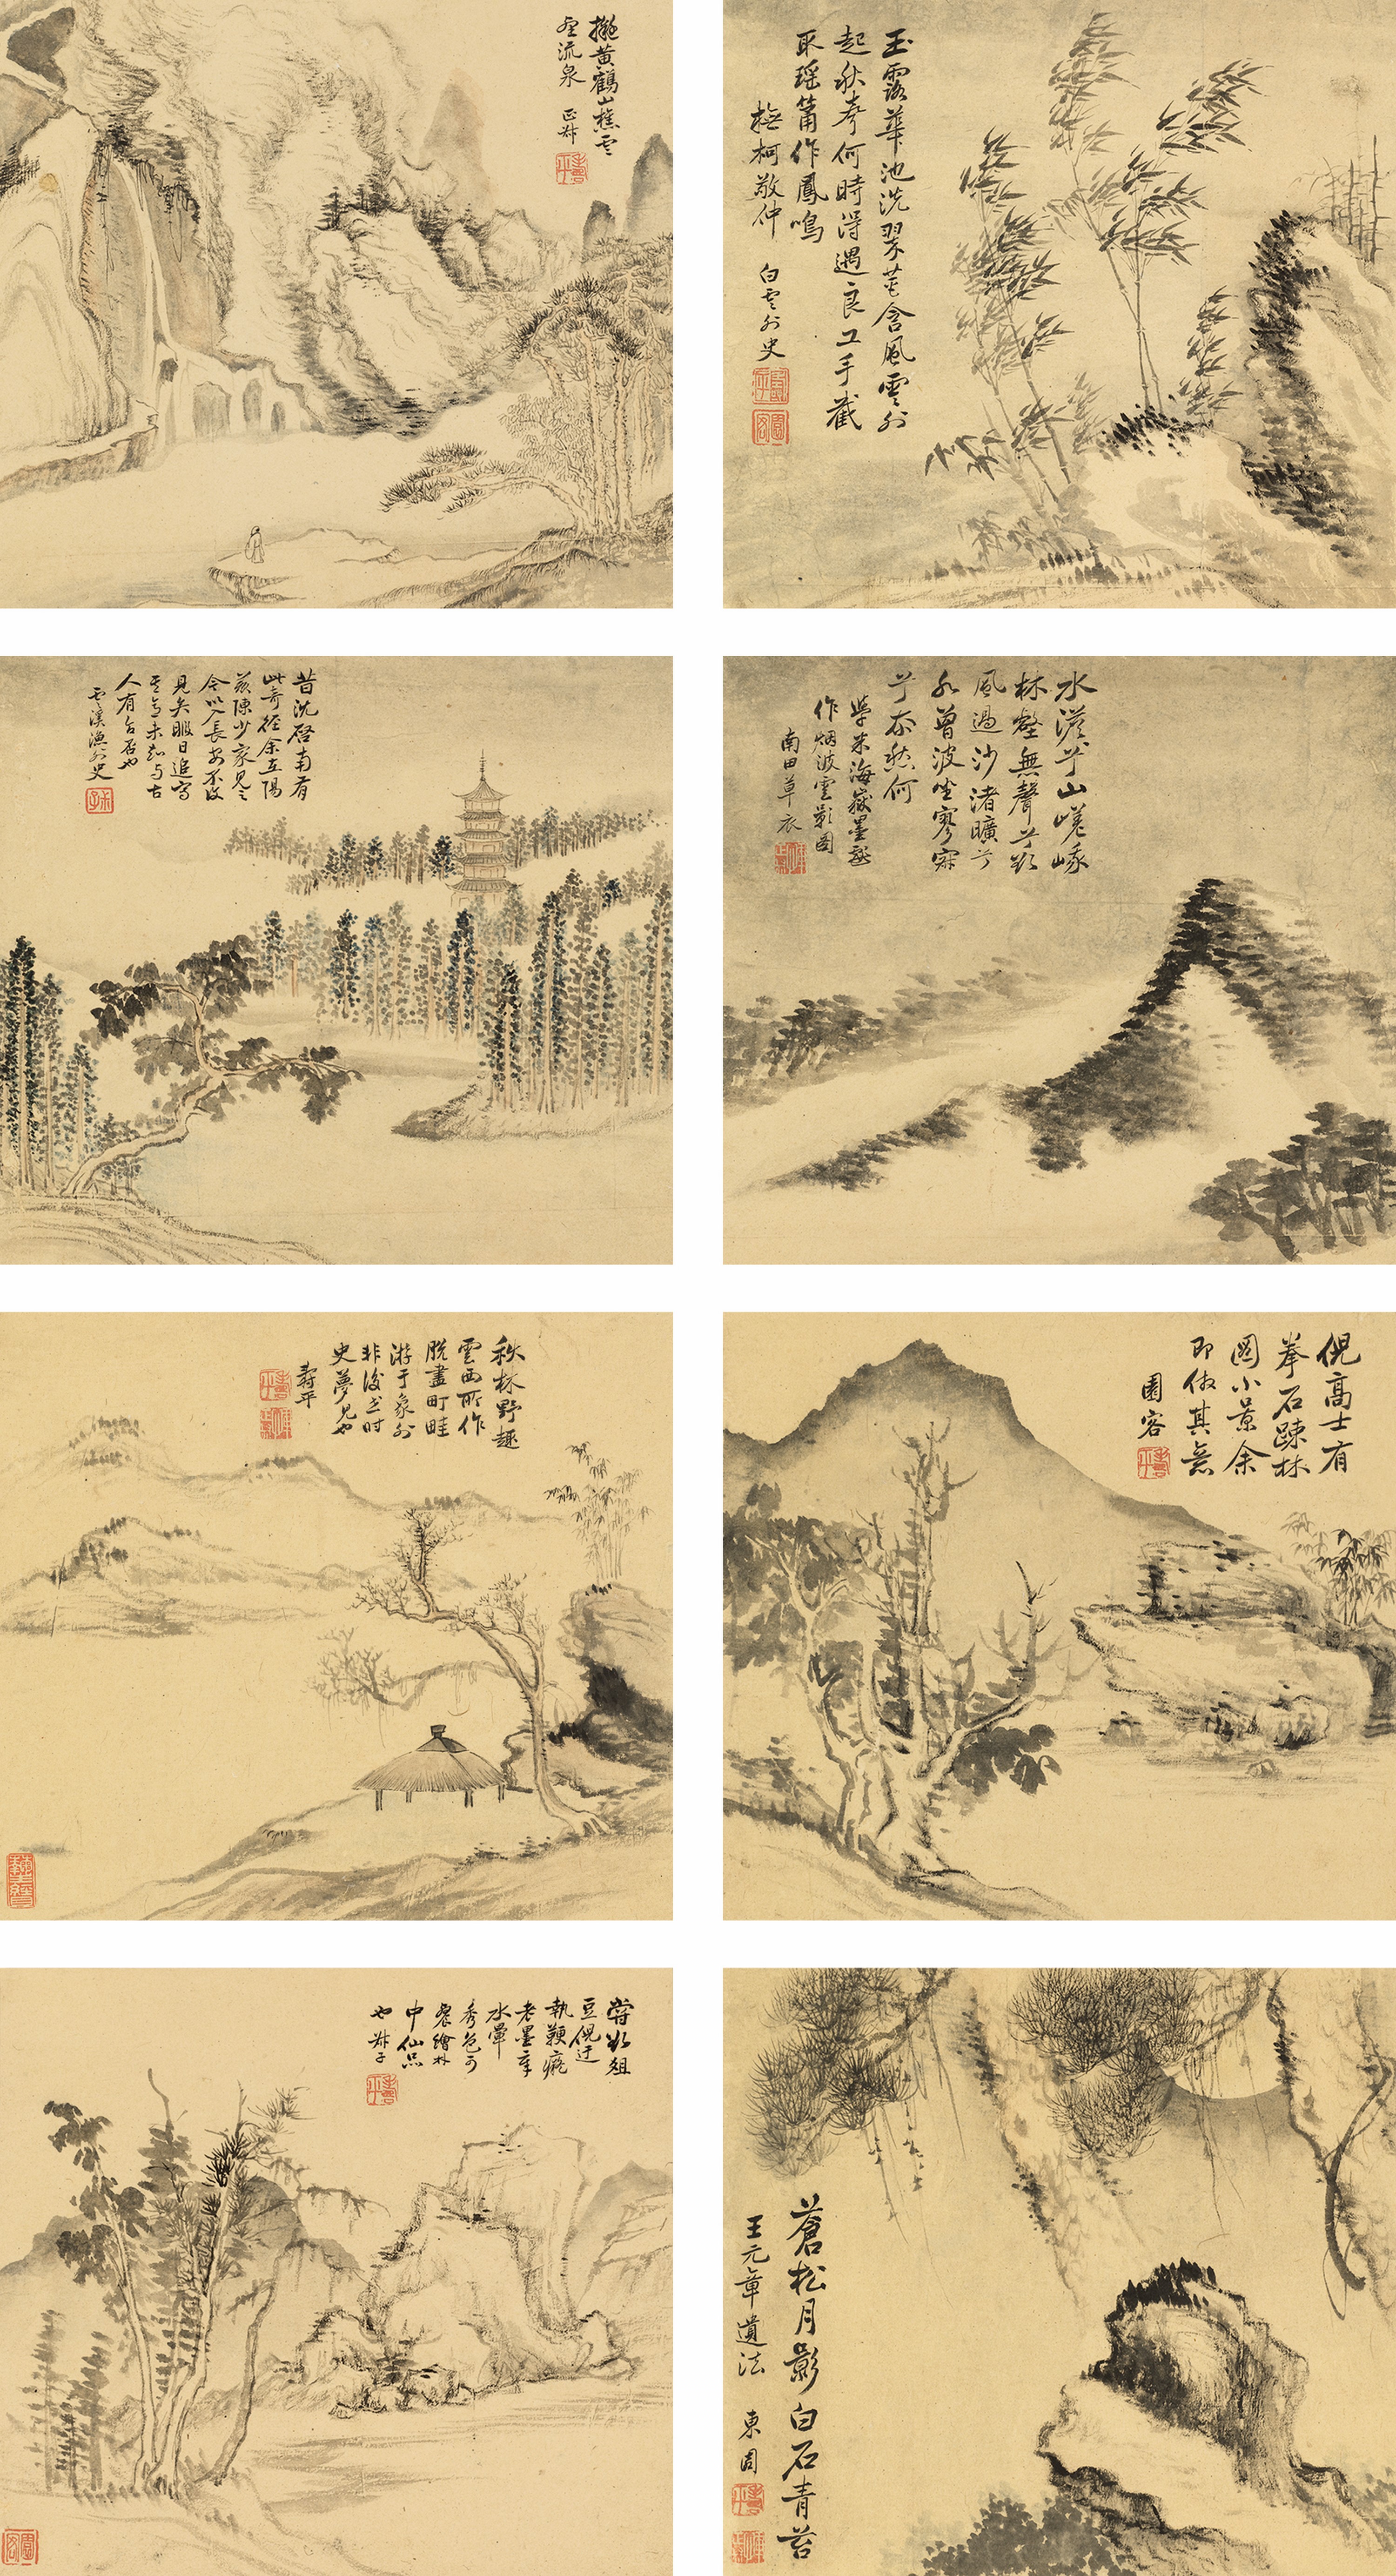 擬黃鶴山樵雲
壑流泉 正叔
玉露華池洗翠苔含風雲外
起秋聲何時得遇良工手截
取瑤簫作鳳鳴
橅柯敬仲 白雲外史
昔沈啓南有
此奇徑余在陽
羨陳少家見之
今以
見矣暇日追寫
未知與古
人有合否也
雲溪漁外史
水澹兮山嵯峨
林壑無聲兮影
風過沙渚曠兮
曾波坐寥寂
兮奈愁何
學米海嶽墨戲
作烟波雲影圖
南田草衣
秋林野趣
雲西所作
脫盡町畦
游于象外
非後世時
史夢見也
壽平
倪高士有
拳石疎林
圖小景余
即倣其意
園客
豆倪迂
執鞭癡
老墨章
水暈
秀色可
餐繪林
中仙品
也 叔子
蒼松月影白石青苔
王元章遺法 東園